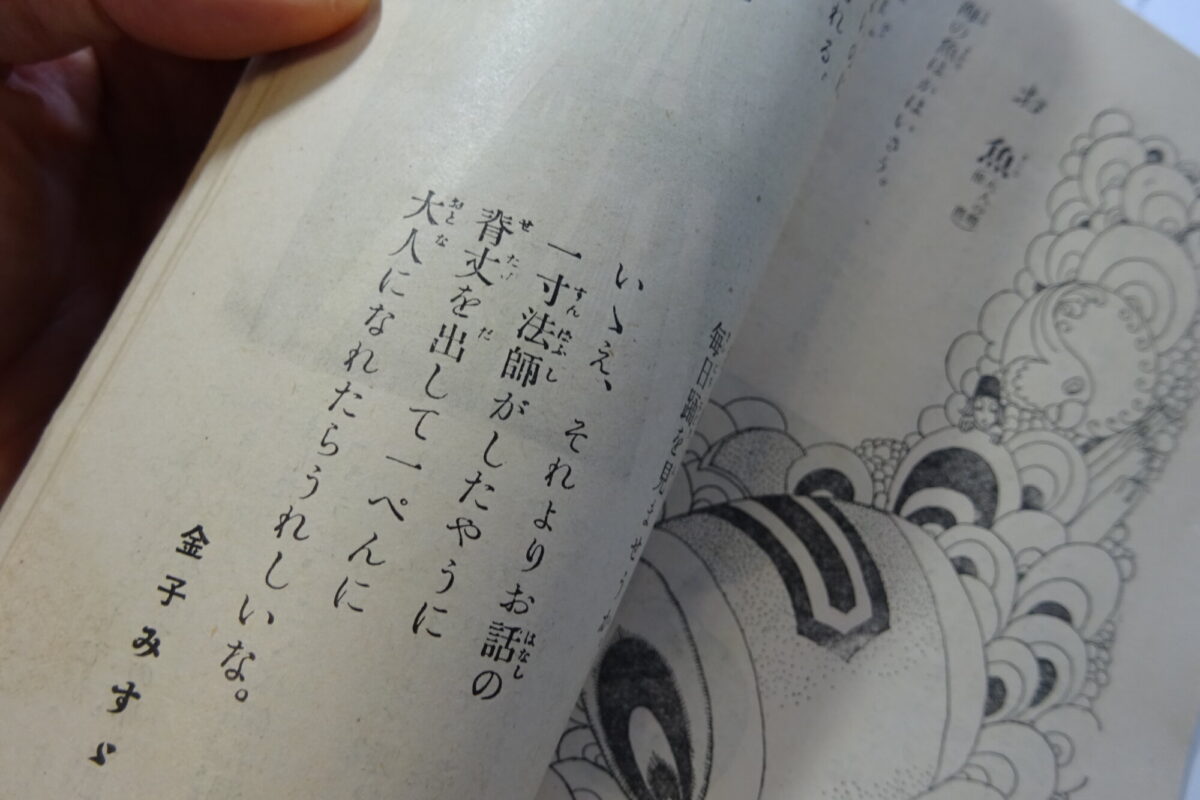 お魚
海の魚はかはいさう。
毎日踊を見
いゝえ、それよりお話の
一寸法師がしたやうに
脊丈を出して一ぺんに
大人になれたらうれしいな。
金子みすゞ